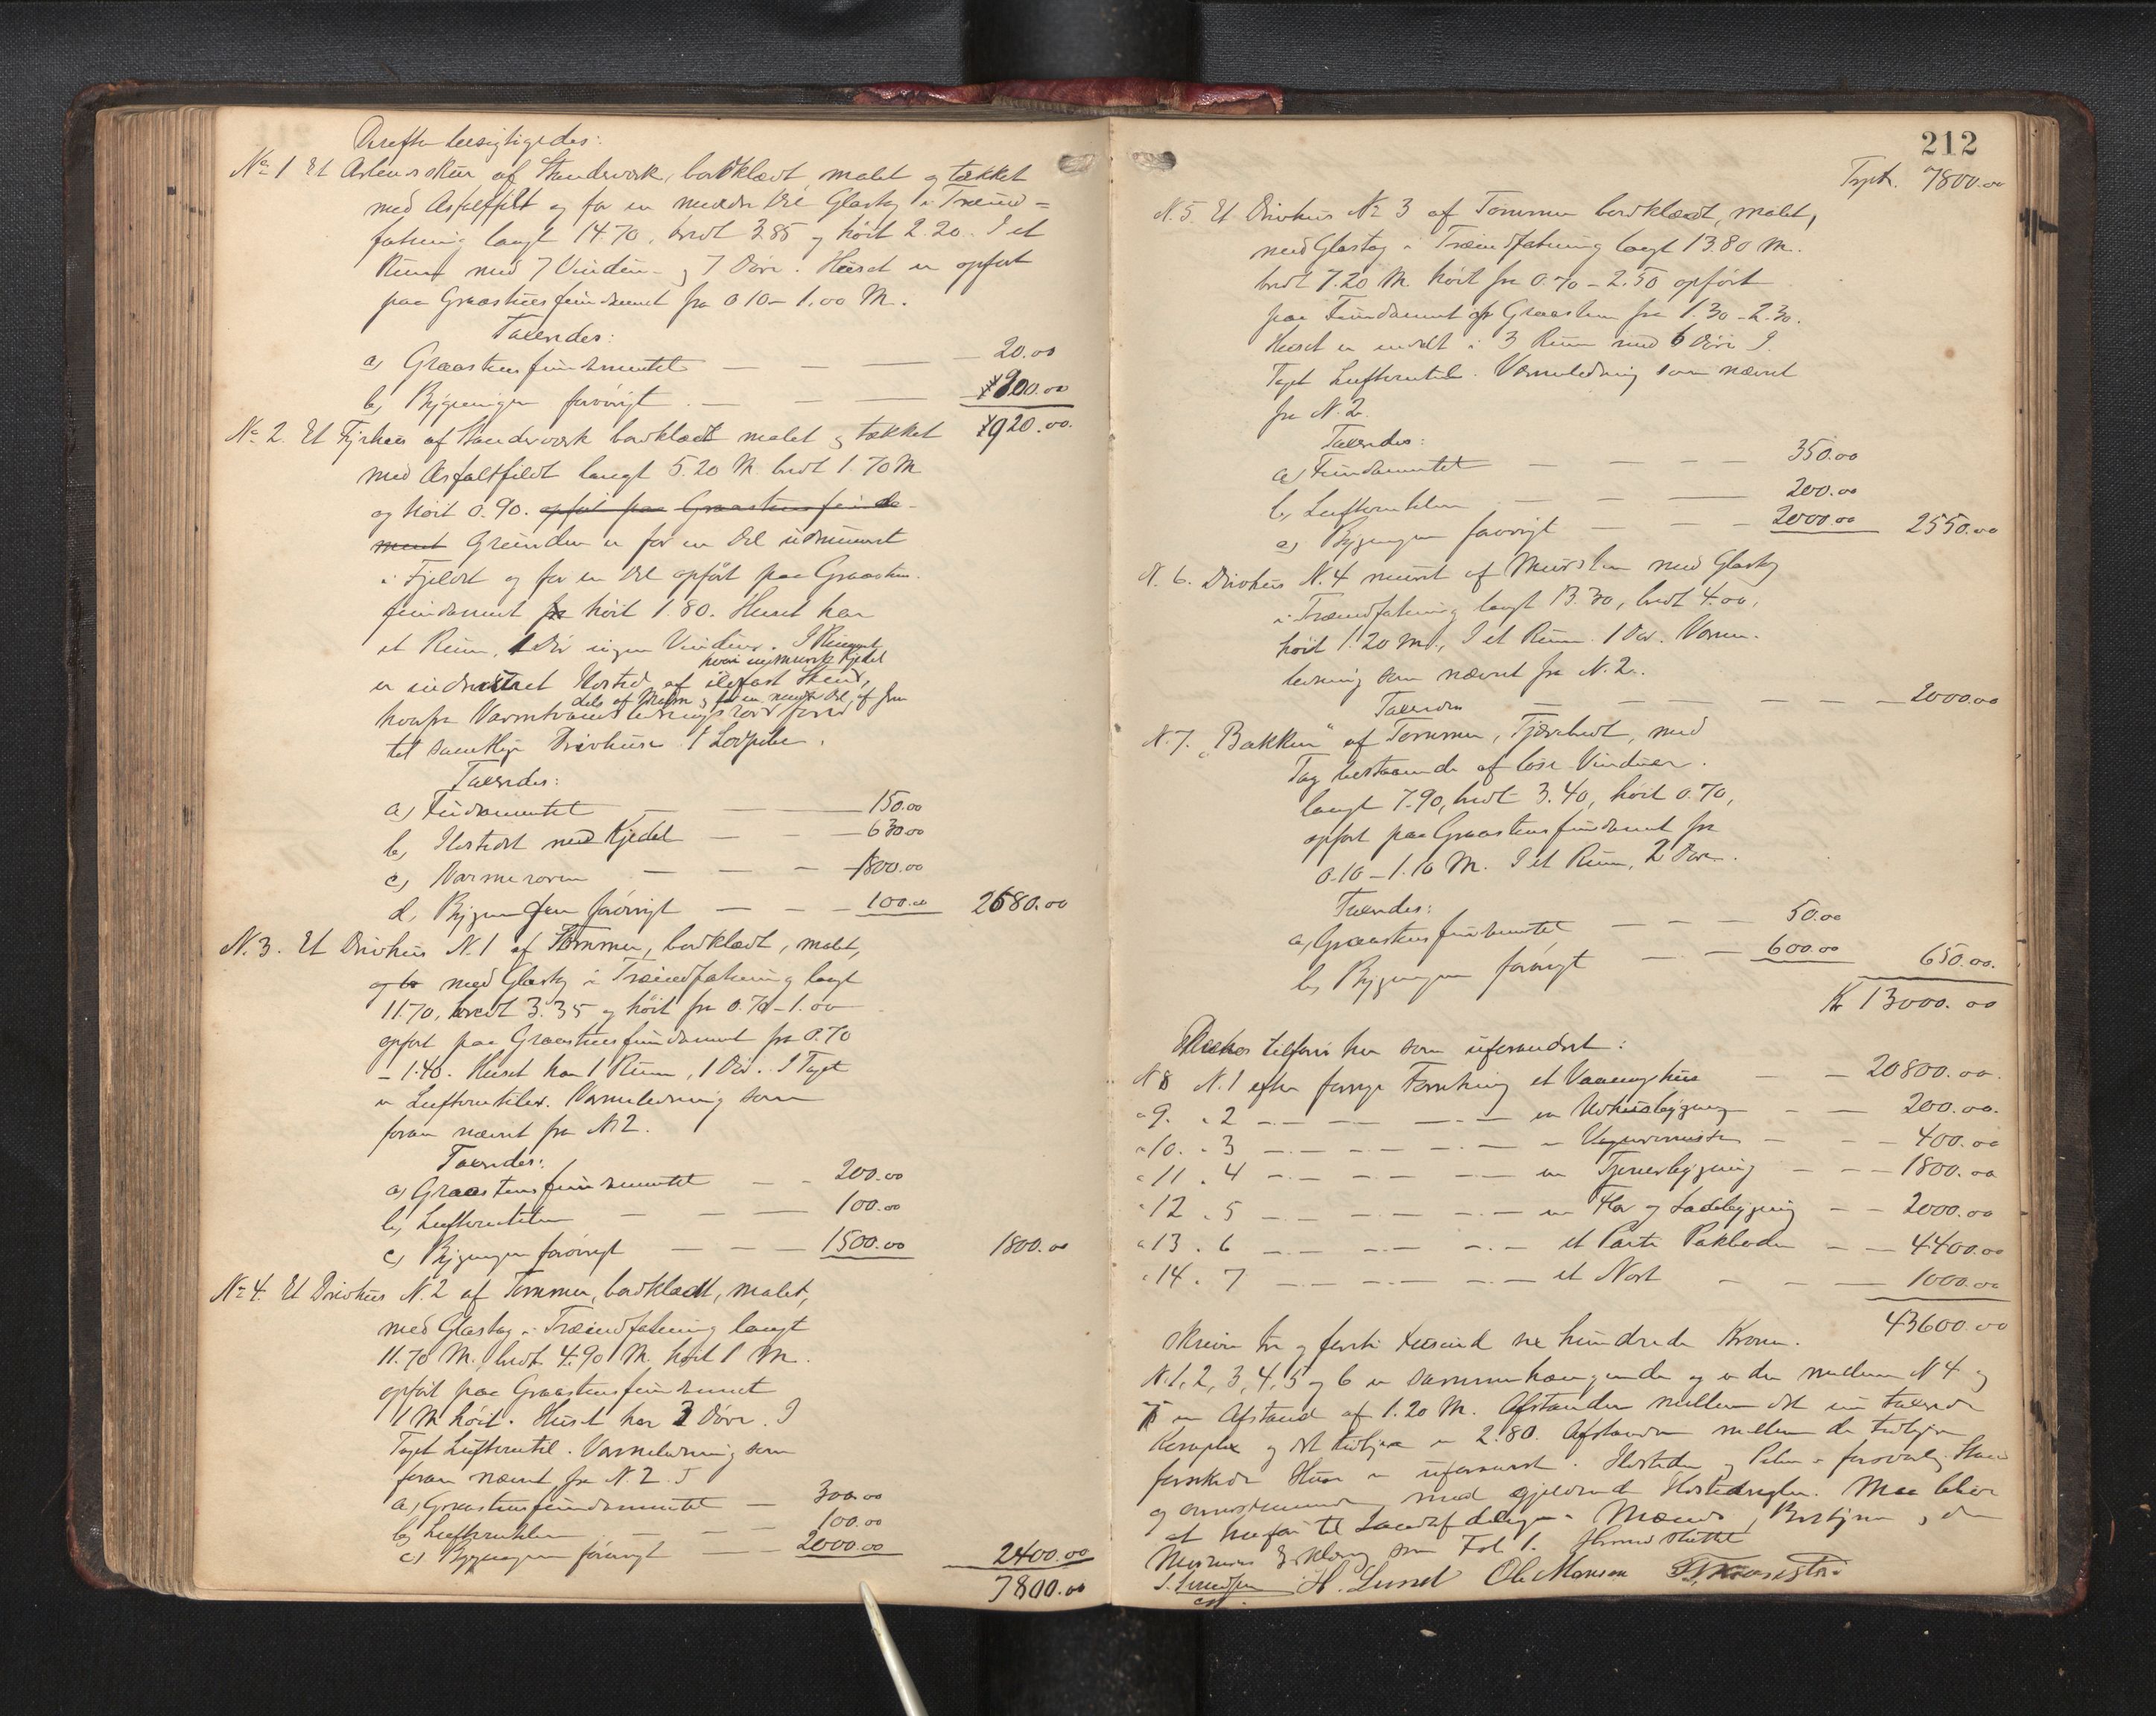 Derefter besigtigedes:
No 1 Et Arbeidsskur af Standerverk, bordklædt malet og tækket
med Asfaltfilt og for en mindre Del Glastag i Træind=
fatning langt 14.70, bredt 3.85 og høit 2.20. I et
Rum med 7 Vinduer og 7 Døre. Huset er opført
paa Graastensfundament fra 0.10 – 1.00 M.
Taxeredes:
a) Graastensfundamentet — — — 20.00
b) Bygningen forøvrigt — — — 900.00
920.00.
No 2. Et Fyrhus af Standerverk bordklædt malet og tækket
med Asfaltfildt langt 5.20 M. bredt 1.70 M
og høit 0.90. opført paa Graastensfunda-
ment Grunden er for en Del udmineret
i Fjeldet og for en Del opført paa Graastens-
fundament fra høit 1.80. Huset har
et Rum, 1 Dør ingen Vinduer. I Rummet
er indredet Ildsted af ildfast Sten,
hvori indmuret Kjedel
hvorfra Varmtvandsledningsrør fører
dels af Malm og for en mindre Del af Jern
til samtlige Drivhuse. 1 Lodpibe.
Taxeredes:
a) Fundamentet — — 150.00
b) Ildstedet med Kjedel — — 630.00
c) Varmerøren — — — 1800.00
d) Bygningen forøvrigt — — — 100.00 2680.00
N. 3. Et Drivhus N. 1 af Tømmer, bordklædt, malet,
og be med Glastag i Træindfatning langt
11.70, bredt 3.35 og høit fra 0.70 – 1.00
opført paa Graastensfundament fra 0.70
– 1.40. Huset har 1 Rum, 1 Dør. I Taget
er Luftventiler. Varmeledning som
foran nævnt fra N. 2.
Taxeredes:
a) Graastensfundamentet — — 200.00
b) Luftventilen — — — 100.00
c) Bygningen forøvrigt — — — 1500.00 1800.00
No 4. Et Drivhus N. 2 af Tømmer, bordklædt, malet,
med Glastag i Træindfatning langt
11.70 M. bredt 4.90 M. høit 1 M.
opført paa Graastensfundament
1 M høit. Huset har 2 Døre. I
Taget Luftventil. Varmeledning som
foran nævnt fra N. 2. T
a) Graastensfundamentet — 300.00
b) Luftventilen — — — 100.00
c) Bygningen forøvrigt — — 2000.00 2400.00
7800.00
212
Tspt. 7800.00
N. 5. Et Drivhus No 3 af Tømmer bordklædt, malet,
med Glastag i Træindfatning langt 13.80 M.
bredt 7.20 M. høit fra 0.70 – 2.50 opført
paa Fundament af Graasten fra 1.30 – 2.30.
Huset er inddelt i 3 Rum med 6 Døre I
Taget Luftventiler. Varmeledning som nævnt
fra N. 2.
Taxeredes:
a) Fundamentet — — — — 350.00
b) Luftventilen — — — 200.00
c) Bygningen forøvrigt — — — 2000.00 2550.00
N. 6. Drivhus N. 4 muret af Mursten med Glastag
i Træindfatning langt 13.30, bredt 4.00,
høit 1.20 M., I et Rum. 1 Dør. Varme-
ledning som nævnt fra N. 2.
Taxeredes — — — — — — 2000.00
N. 7. "Bakken" af Tømmer, Tjærebredt, med
Tag bestaaende af løse Vinduer.
langt 7.90, bredt 3.40, høit 0.70,
opført paa Graastensfundament fra
0.10 – 1.10 M. I et Rum, 2 Døre.
Taxeredes:
a) Graastensfundamentet — — — 50.00
b) Bygningen forøvrigt — — 600.00 650.00.
Kr 13000.00
tilføies her som uforandret:
N 8 N. 1 efter forrige Forretning et Vaaningshus — — 20800.00.
" 9. " 2 — — — — en Udhusbygning — — 200.00.
" 10. " 3 — — — — — — — 400.00
" 11 " 4 — — — — en Tjenerbygning — — 1800.00
" 12 " 5 — — — — en Flor og Ladebygning — — 2000.00
" 13 " 6 — — — — et Parti Pakboder — — 4400.00
" 14 " 7 — — — — et Nøst — — — 1000.00
43600.00
skriver tre og førti tusind sex hundrede Kroner.
N. 1, 2, 3, 4, 5 og 6 er sammenhængende og er der mellem N 4 og
7 en Afstand af 1.20 M. Afstanden mellem det nu taxerede
Komplex og det tidligere er 2.80. Afstanden mellem de tidligere
forsikrede Huse er uforandret. Ildsteder og Piber i forsvarlig Stand
og overensstemmende med gjældende Ildstedregler. Maa blive
at henføre til Landafdelingen. Mænds, Bestyrer og den
Erklæring som Fol 1.
H. Lund Ole Monsen